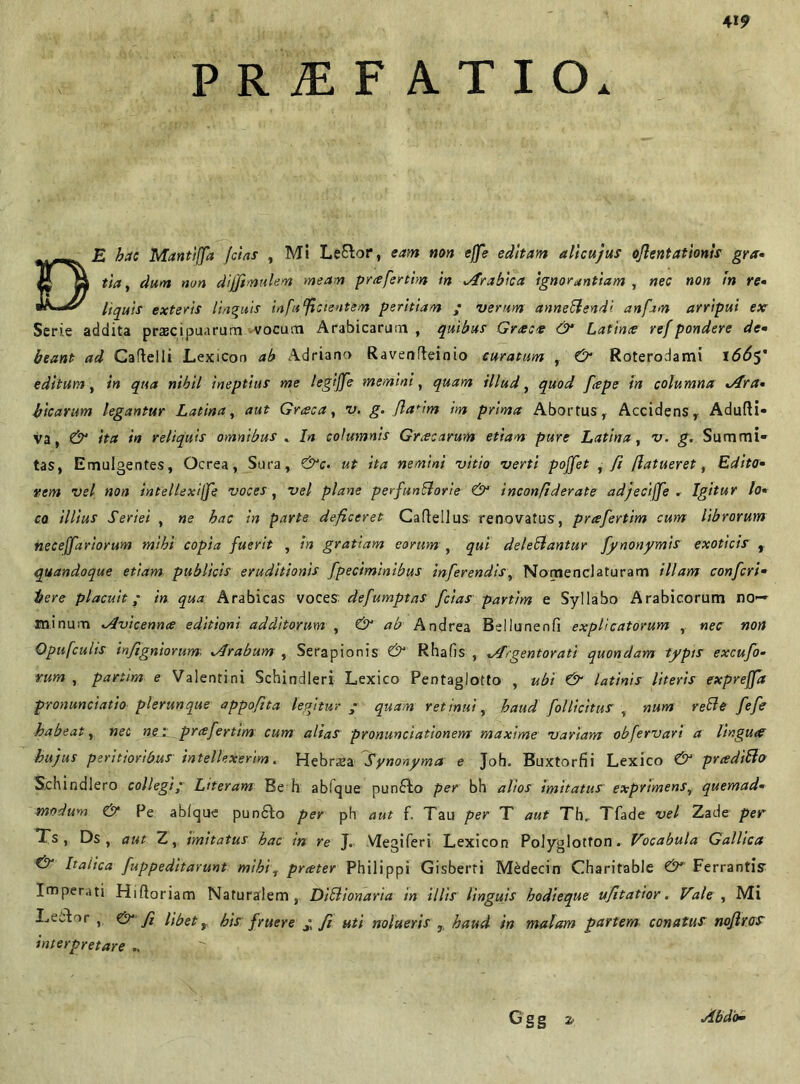 419
PRÆFATIO.
DE hac Mantissa scias , Mi Lector, eam non esse editam alicujus ostentationis gra-
tia, dum non dissimulem meam præsertim in Arabica ignorantiam , nec non in re-
liquis exteris linguis insufficientem peritiam ; verum annectendi ansam arripui ex
Serie addita præcipuarum vocum Arabicarum , quibus Græcæ & Latinæ respondere de-
beant ad Castelli Lexicon ab Adriano Ravensteinio curatum , & Roterodami 1665'
editum, in qua nihil ineptius me legisse memini, quam illud, quod sæpe in columna Ara-
bicarum legantur Latina, aut Græca, v. g. statim im prima Abortus, Accidens, Adusti-
va, & ita in reliquis omnibus . In columnis Græcarum etiam pure Latina, v. g. Summi-
tas, Emulgentes, Ocrea, Sura, &c. ut ita nemini vitio verti posset , si statueret, Edito-
rem vel non intellexisse voces, vel plane perfunctorie & inconsiderate adjecisse . Igitur lo-
co illius Seriei , ne hac in parte deficeret Castellus renovatus, præsertim cum librorum
necessariorum mihi copia fuerit , in gratiam eorum , qui delectantur synonymis exoticis ,
quandoque etiam publicis eruditionis speciminibus inferendis, Nomenclaturam illam conscri-
bere placuit ; in qua Arabicas voces desumptas scias partim e Syllabo Arabicorum no-
minum Avicennæ editioni additorum , & ab Andrea Bellunensi explicatorum , nec non
Opusculis insigniorum Arabum , Serapionis & Rhasis , Argentorati quondam typis excuso-
rum , partim e Valentini Schindleri Lexico Pentaglotto , ubi & latinis literis expressa
pronunciatio plerunque apposita legitur ; quam retinui, haud sollicitus , num recte sese
habeat, nec ne: præsertim cum alias pronunciationem maxime variam observari a linguæ
hujus peritioribus intellexerim. Hebræa Synonyma e Joh. Buxtorfii Lexico & prædicto
Schindlero collegi; Literam Be h absque puncto per bh alios imitatus exprimens, quemad-
modum & Pe absque puncto per ph aut f. Tau per T aut Th. Tsade vel Zade per
Ts, Ds, aut Z, imitatus hac in re J. Megiseri Lexicon Polyglotton. Vocabula Gallica
& Italica suppeditarunt mihi, præter Philippi Gisberti Mèdecin Charitable & Ferrantis
Imperati Historiam Naturalem, Dictionaria in illis linguis hodieque usitatior. Vale , Mi
Lector , & si libet, his fruere ; si uti nolueris , haud in malam partem conatus nostros
interpretare .
Ggg 2 Abdo-